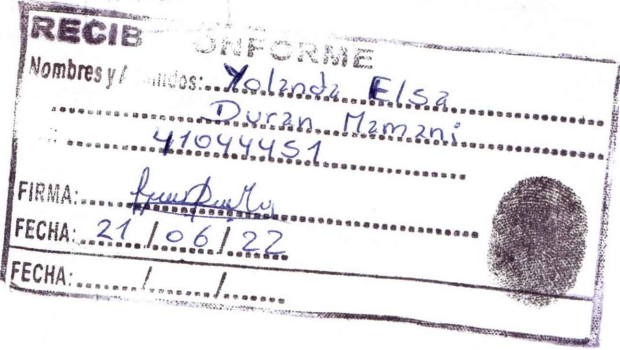 RECIB ONFORME
Nombres y A idos: Yolanda Elsa
Duran Mamani
41044451
FIRMA:
FECHA: 21 / 06 / 22
FECHA: / /